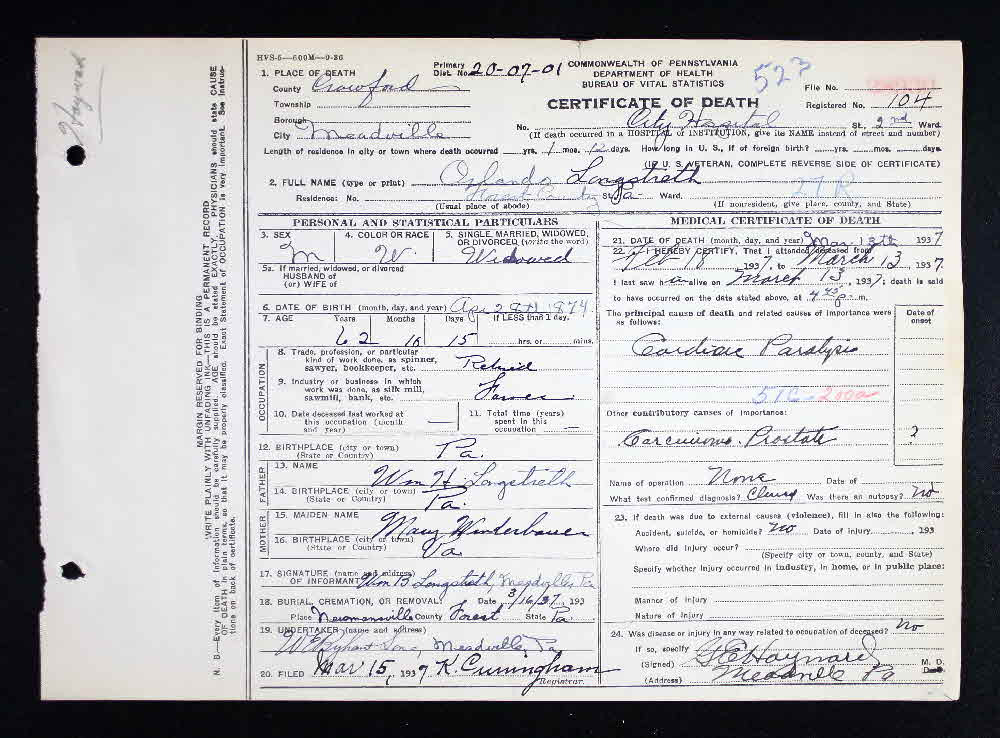 Hayward
HVS-5—600M—9-36
1. PLACE OF DEATH
County Crawford
Township
Borough
City Meadville
Primary Dist. No. 20-07-01
COMMONWEALTH OF PENNSYLVANIA
DEPARTMENT OF HEALTH
BUREAU OF VITAL STATISTICS
CERTIFICATE OF DEATH
523
File No.
Registered No. 104
No. City Hospital St., 2nd Ward.
(If death occurred in a HOSPITAL or INSTITUTION, give its NAME instead of street and number)
Length of residence in city or town where death occurred yrs. 1 mos. 12 days. How long in U. S., if of foreign birth? yrs. mos. days.
(IF U. S. VETERAN, COMPLETE REVERSE SIDE OF CERTIFICATE)
2. FULL NAME (type or print) Orlando Longstreth
27 R
Residence: No. Forest County St. Pa Ward.
(Usual place of abode) (If nonresident, give place, county, and State)
PERSONAL AND STATISTICAL PARTICULARS
3. SEX M
4. COLOR OR RACE W.
5. SINGLE, MARRIED, WIDOWED, OR DIVORCED (write the word) Widowed
5a. If married, widowed, or divorced
HUSBAND of
(or) WIFE of
6. DATE OF BIRTH (month, day, and year) Apr 28th 1874
7. AGE Years Months Days If LESS than 1 day,
62 10 15 hrs. or mins.
OCCUPATION
8. Trade, profession, or particular
kind of work done, as spinner,
sawyer, bookkeeper, etc. Retired
9. Industry or business in which
work was done, as silk mill,
sawmill, bank, etc. Farmer
10. Date deceased last worked at
this occupation (month
and year)
11. Total time (years)
spent in this
occupation
12. BIRTHPLACE (city or town) Pa.
(State or Country)
FATHER
13. NAME Wm H. Longstreth
14. BIRTHPLACE (city or town) Pa.
(State or Country)
MOTHER
15. MAIDEN NAME Mary Winterbauer
16. BIRTHPLACE (city or town)
(State or Country) Va
17. SIGNATURE (name and address)
OF INFORMANT Wm B Longstreth, Meadville, Pa
18. BURIAL, CREMATION, OR REMOVAL: Date 3/16/37, 193
Place Newmansville County Forest State Pa
19. UNDERTAKER (name and address)
Sons, Meadville, Pa
20. FILED Mar 15, 1937 K. Cunningham
Registrar.
MEDICAL CERTIFICATE OF DEATH
21. DATE OF DEATH (month, day, and year) Mar 13th 1937
22. I HEREBY CERTIFY, That I attended deceased from
Feb 18, 1937, to March 13, 1937.
I last saw h alive on March 13, 1937; death is said
to have occurred on the date stated above, at p. m.
The principal cause of death and related causes of importance were
as follows:
Date of onset
Cardiac Paralysis
51C - 200a
Other contributory causes of importance:
Carcinoma Prostate ?
Name of operation None Date of
What test confirmed diagnosis? Was there an autopsy? No
23. If death was due to external causes (violence), fill in also the following:
Accident, suicide, or homicide? No Date of injury, 193
Where did injury occur?
(Specify city or town, county, and State)
Specify whether injury occurred in industry, in home, or in public place:
Manner of injury
Nature of injury
24. Was disease or injury in any way related to occupation of deceased? No
If so, specify
(Signed) G E Hayward M. D.
(Address) Meadville Pa
MARGIN RESERVED FOR BINDING
WRITE PLAINLY WITH UNFADING INK—THIS IS A PERMANENT RECORD
N. B.—Every item of information should be carefully supplied. AGE should be stated EXACTLY. PHYSICIANS should state CAUSE
OF DEATH in plain terms, so that it may be properly classified. Exact Statement of OCCUPATION is very important. See instructions
on back of certificate.